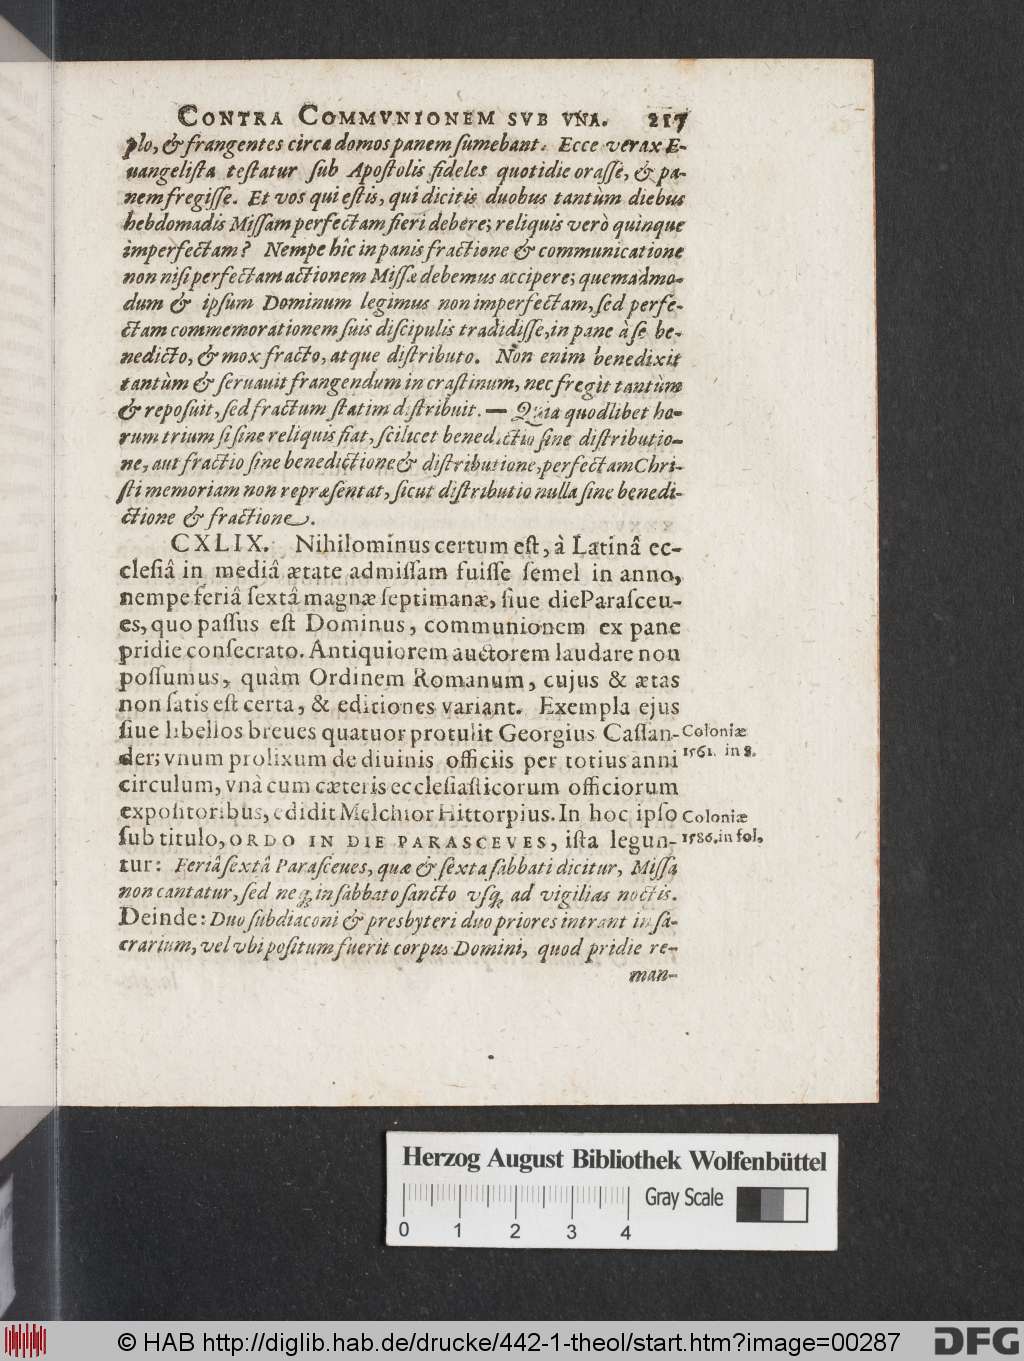 CONTRA COMMVNIONEM SVB VNA. 217
plo, & frangentes circa domos panem ſumebant. Ecce verax E-
uangeliſta teſtatur ſub Apoſtolis fideles quotidie oraſſe, & pa-
nem fregiſſe. Et vos qui eſtis, qui dicitis duobus tantùm diebus
hebdomadis Miſſam perfectam fieri debere; reliquis verò quinque
imperfectam? Nempe hîc in panis fractione & communicatione
non niſi perfectam actionem Miſſæ debemus accipere; quemadmo-
dum & ipſum Dominum legimus non imperfectam, ſed perfe-
ctam commemorationem ſuis diſcipulis tradidiſſe, in pane à ſe be-
nedicto, & mox fracto, atque diſtributo. Non enim benedixit
tantùm & ſeruauit frangendum in craſtinum, nec fregit tantùm
& repoſuit, ſed fractum ſtatim diſtribuit. — Quia quodlibet ho-
rum trium ſi ſine reliquis fiat, ſcilicet benedictio ſine diſtributio-
ne, aut fractio ſine benedictione & diſtributione, perfectam Chri-
ſti memoriam non repræſentat, ſicut diſtributio nulla ſine benedi-
ctione & fractione.
CXLIX. Nihilominus certum eſt, à Latinâ ec-
cleſiâ in mediâ ætate admiſſam fuiſſe ſemel in anno,
nempe feriâ ſextâ magnæ ſeptimanæ, ſiue die Paraſceu-
es, quo paſſus eſt Dominus, communionem ex pane
pridie conſecrato. Antiquiorem auctorem laudare non
poſſumus, quàm Ordinem Romanum, cujus & ætas
non ſatis eſt certa, & editiones variant. Exempla ejus
ſiue libellos breues quatuor protulit Georgius Caſſan-
Coloniæ
1561. in 8.
der; vnum prolixum de diuinis officiis per totius anni
circulum, vnà cum cæteris eccleſiaſticorum officiorum
expoſitoribus, edidit Melchior Hittorpius. In hoc ipſo
Coloniæ
1586. in fol,
ſub titulo, ORDO IN DIE PARASCEVES, iſta legun-
tur: Feriâ ſextâ Paraſceues, quæ & ſexta ſabbati dicitur, Miſſa
non cantatur, ſed neq; in ſabbato ſancto vſq; ad vigilias noctis.
Deinde: Duo ſubdiaconi & presbyteri duo priores intrant in ſa-
crarium, vel vbi poſitum fuerit corpus Domini, quod pridie re-
man-
Herzog August Bibliothek Wolfenbüttel
Gray Scale
0 1 2 3 4
© HAB http://diglib.hab.de/drucke/442-1-theol/start.htm?image=00287
DFG